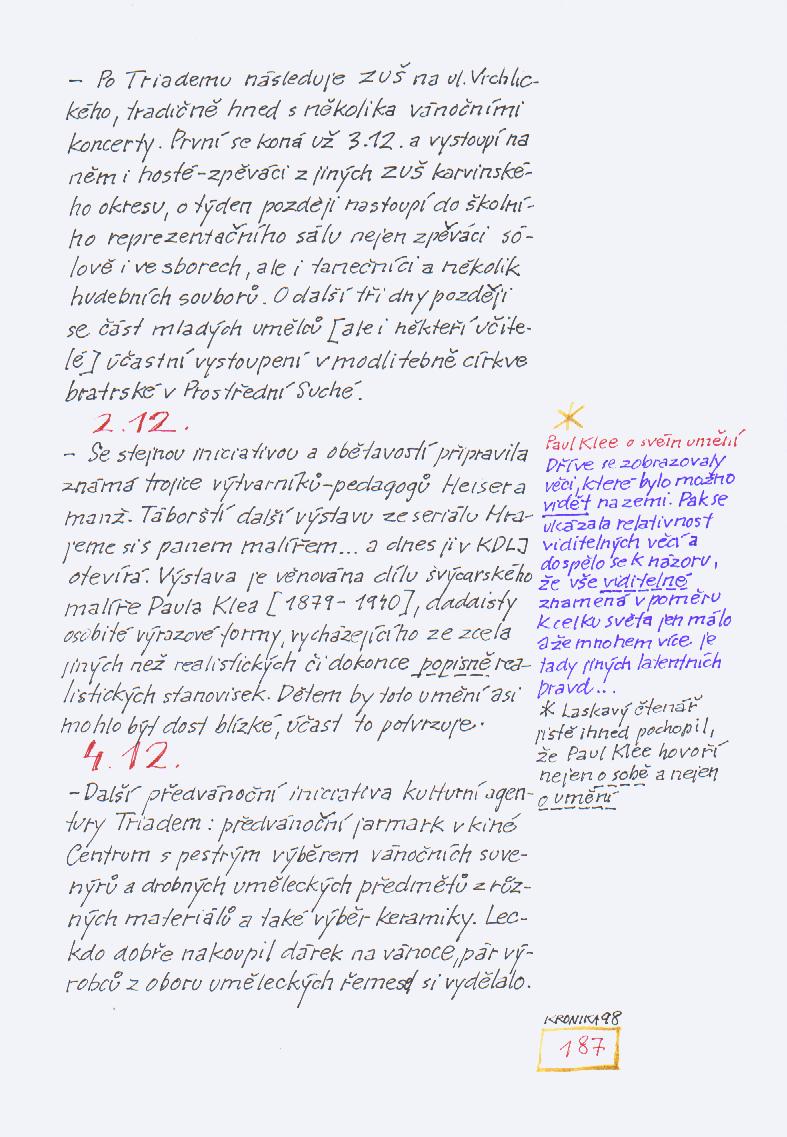 – Po Triademu následuje ZUŠ na ul. Vrchlic-
kého, tradičně hned s několika vánočními
koncerty. První se koná už 3.12. a vystoupí na
něm i hosté-zpěváci z jiných ZUŠ karvinské-
ho okresu, o týden později nastoupí do školní-
ho reprezentačního sálu nejen zpěváci só-
lově i ve sborech, ale i tanečníci a několik
hudebních souborů. O další tři dny později
se část mladých umělců [ale i někteří učite-
lé] účastní vystoupení v modlitebně církve
bratrské v Prostřední Suché.
2.12.
– Se stejnou iniciativou a obětavostí připravila
známá trojice výtvarníků-pedagogů Heisera
manž. Táborští další výstavu ze seriálu Hra-
jeme si s panem malířem... a dnes ji v KDLJ
otevírá. Výstava je věnována dílu švýcarského
malíře Paula Klea [1879-1940], dadaisty
osobité výrazové formy, vycházejícího ze zcela
jiných než realistických či dokonce popisně rea-
listických stanovisek. Dětem by toto umění asi
mohlo být dost blízké, účast to potvrzuje.
4.12.
– Další předvánoční iniciativa kulturní agen-
tury Triadem : předvánoční jarmark v kině
Centrum s pestrým výběrem vánočních suve-
nýrů a drobných uměleckých předmětů z růz-
ných materiálů a také výběr keramiky. Lec-
kdo dobře nakoupil dárek na vánoce, pár vý-
robců z oboru uměleckých řemesel si vydělalo.
*
Paul Klee o svém umění
Dříve se zobrazovaly
věci, které bylo možno
vidět na zemi. Pak se
ukázala relativnost
viditelných věcí a
dospělo se k názoru,
že vše viditelné
znamená v poměru
k celku světa jen málo
a že mnohem více je
tady jiných latentních
pravd...
* Laskavý čtenář
jistě ihned pochopil,
že Paul Klee hovoří
nejen o sobě a nejen
o umění
KRONIKA 98
187